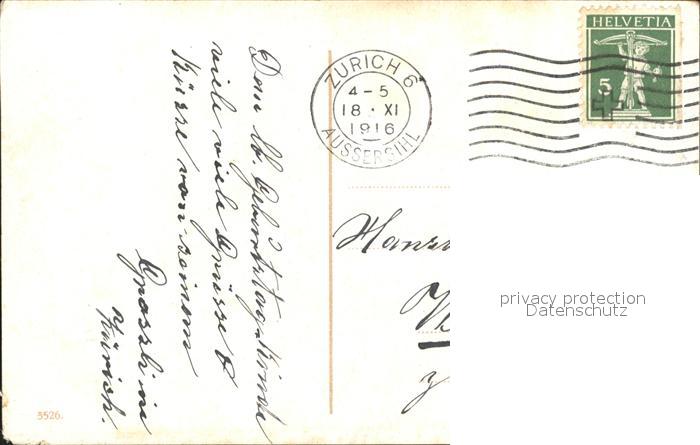 HELVETIA
5
ZURICH 6
4-5
18·XI
1916
AUSSERSIHL
Dem lb. Geburtstagskinde
viele viele Grüsse &
Küsse von seinem
Grossli in
Zürich.
privacy protection
Datenschutz
5526.